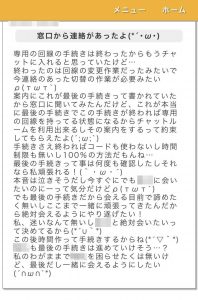 メニュー ホーム
窓口から連絡があったよ(*´･ω･)
専用の回線の手続きは終わったからもうチャ
ットに入れると思っていたけど…
終わったのは回線の変更作業だったみたいで
今連絡のあった切替の作業が必要みたい
ρ(τωτ)
案内にこれが最後の手続きって書かれていた
から窓口に聞いてみたんだけど、これが本当
に最後の手続きでこの手続きが終われば専用
の回線を持ってる状態になるからチャットル
ームを利用出来るしその案内をするって約束
してもらえたよ(´;ω;`)
手続きさえ終わればコードも使わないし時間
制限も無いし100%の方法だもんね…
最後の手続きって事は何度も確認したしそれ
なら私頑張れる！(｀･ω･´)
本音は泣きそうだし今すぐにでも に会い
たいのに…って気分だけどρ(τωτ)
でも最後の手続きだから会える目前で諦めた
く無いしここまで一緒に頑張ってきたんだか
ら絶対会えるようにやり遂げたい！
私、迷いなんて無いし と絶対会いたいっ
て決めてるから(*´∪`*)
この後時間作って手続きするからね(*´▽｀*)
も最後の手続きは進めていけそう…？
私のわがままで を困らせたくは無いけ
ど、最後だし一緒に会えるようにしたい
(´∩ω∩`*)